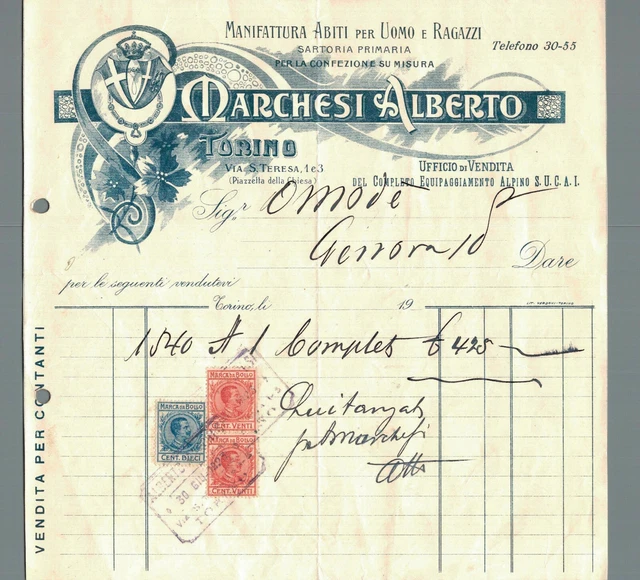 MANIFATTURA ABITI PER UOMO E RAGAZZI
SARTORIA PRIMARIA
PER LA CONFEZIONE SU MISURA
Telefono 30-55
MARCHESI ALBERTO
TORINO
VIA S. TERESA, 1 e 3
(Piazzetta della Chiesa)
UFFICIO DI VENDITA
DEL COMPLETO EQUIPAGGIAMENTO ALPINO S.U.C.A.I.
Sig.r Omodè
Genova 10
Dare
per le seguenti vendutevi
Torino, li 19
VENDITA PER CONTANTI
1540 N 1 Complet £ 425
MARCA DA BOLLO
CENT. VENTI
MARCA DA BOLLO
CENT. DIECI
MARCA DA BOLLO
CENT. VENTI
Quitanzato
pr Marchesi
30 GIU
VIA S.